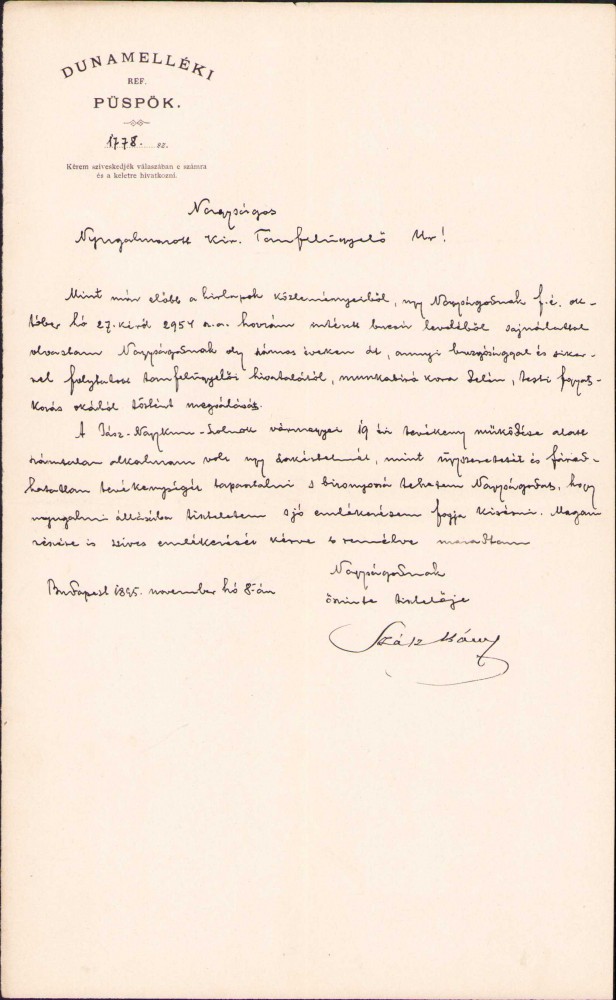 DUNAMELLÉKI
REF.
PÜSPÖK.
1778. 92.
Kérem sziveskedjék válaszában e számra
és a keletre hivatkozni.
Nagyságos
Nyugalmazott Kir. Tanfelügyelő Ur!
Mint már előbb a hirlapok közleményeiből, ugy Nagyságodnak f. é. ok-
tóber hó 27. kéről 2954 a. a. hozzám intézett bucsu leveléből sajnálattal
olvastam Nagyságodnak oly számos éveken át, annyi buzgósággal és siker-
rel folytatott tanfelügyelői hivatalától, munkabiró kora delén, testi fogyat-
kozás okából történt megválását.
A Jász-Nagykun-Szolnok vármegyei 19 évi tevékeny működése alatt
számtalan alkalmam volt ugy szakértelmét, mint ügyszeretetét és fárad-
hatatlan tevékenységét tapasztalni s bizonyossá tehetem Nagyságodat, hogy
nyugalmi állásába tiszteletem s jó emlékezésem fogja kisérni. Magam
részére is szives emlékezését kérve s remélve maradtam
Nagyságodnak
Budapest 1895. november hó 8-án
őszinte tisztelője
Szász Károly